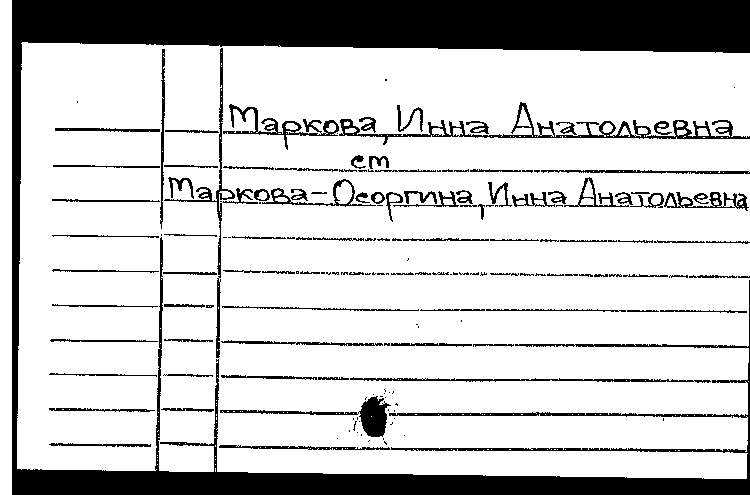 Маркова, Инна Анатольевна
см
Маркова-Осоргина, Инна Анатольевна